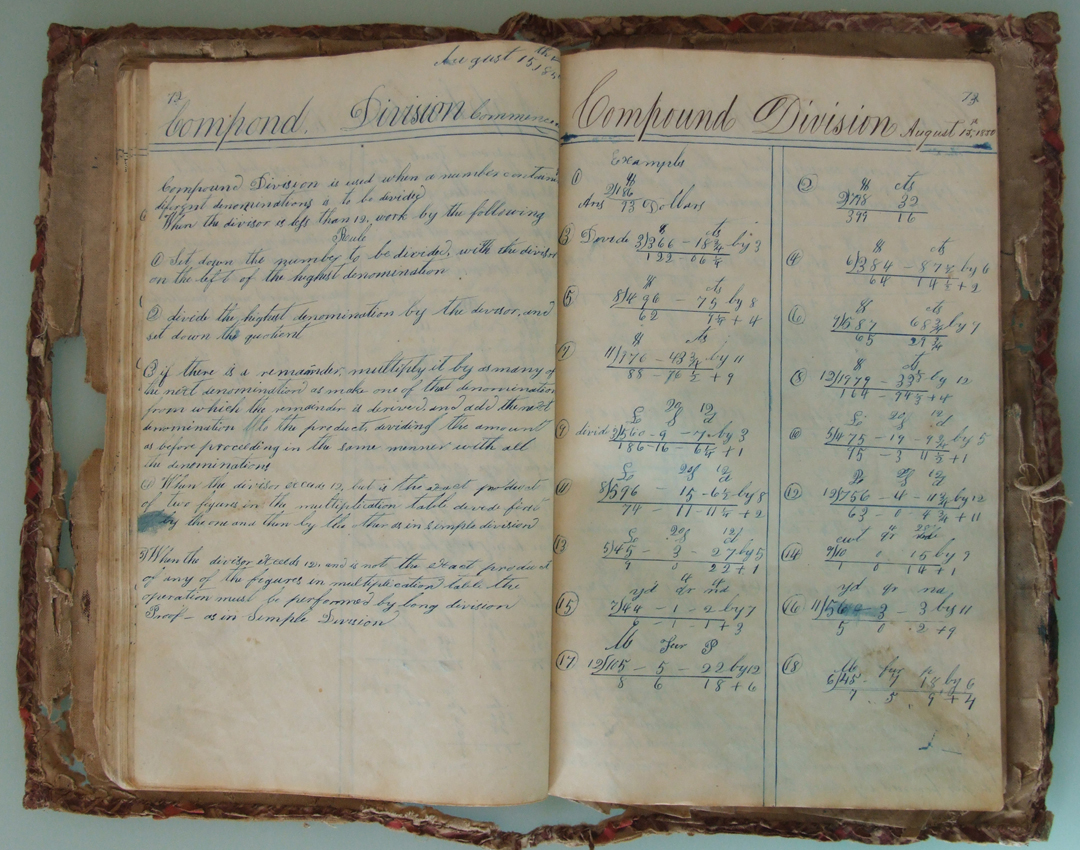 August 15th 185
72
Compond. Division Commence
Compound Division is used when a number contains
diferent denominations is to be divided
When the divisor is less than 12, work by the following
Rule
① Set down the number to be divided, with the divisor
on the left of the highest denomination
② divide the highest denomination by the divisor, and
set down the quotient
③ if there is a remainder, multiply it by as many of
the next denomination as make one of that denomination
from which the remainder is derived and add the next
denomination to the product, dividing the amount
as before proceeding in the same manner with all
the denominations
When the divisor exceed 12, but is the exact product
of two figures in the multiplication table divide first
by the one and then by the other as in simple division
When the divisor exceeds 12, and is not the exact product
of any of the figures in multiplication table the
operation must be performed by long division
Proof – as in Simple Division
73
Compound Division August 15th, 1850
Examples
① $
2)186
Ans 93 Dollars
② $ cts
2)798 32
399 16
③ Devide $ cts
3)366 – 18 3/4 by 3
122 – 06 1/4
④ $ cts
6)384 – 87 1/2 by 6
64 14 1/2 + 2
⑤ $ cts
8)496 – 75 by 8
62 9 1/4 + 4
⑥ $ cts
9)587 68 3/4 by 9
65 29 3/4
⑦ $ cts
11)976 – 43 3/4 by 11
88 – 76 1/2 + 9
⑧ $ cts
12)1979 – 33 by 12
164 – 94 1/4 + 4
20 12
⑨ £ S d
divid 3)560 – 9 – 7 by 3
186 – 16 – 6 1/4 + 1
⑩ £ 20S 12d
5)475 – 19 – 9 3/4 by 5
95 – 3 11 1/2 + 1
⑪ £ 20S 12d
8)596 – 15 – 6 1/2 by 8
74 – 11 – 11 1/4 + 2
⑫ 20S 12
12)756 – 4 – 11 3/4 by 12
63 – 0 4 3/4 + 11
13 £ 20S 12d
5)45 – 3 – 27 by 5
9 0 22 + 1
⑭ cwt qr
9)10 0 15 by 9
1 0 14 + 1
⑮ yd qr na
7)44 – 1 – 2 by 7
6 – 1 – 1 + 3
⑯ yd qr na
11)56 3 – 3 by 11
5 0 2 + 9
⑰ M Fur P
12)105 – 5 – 22 by 12
8 6 18 + 6
⑱ M fur po
6)45 7 18 by 6
7 5 9 + 4